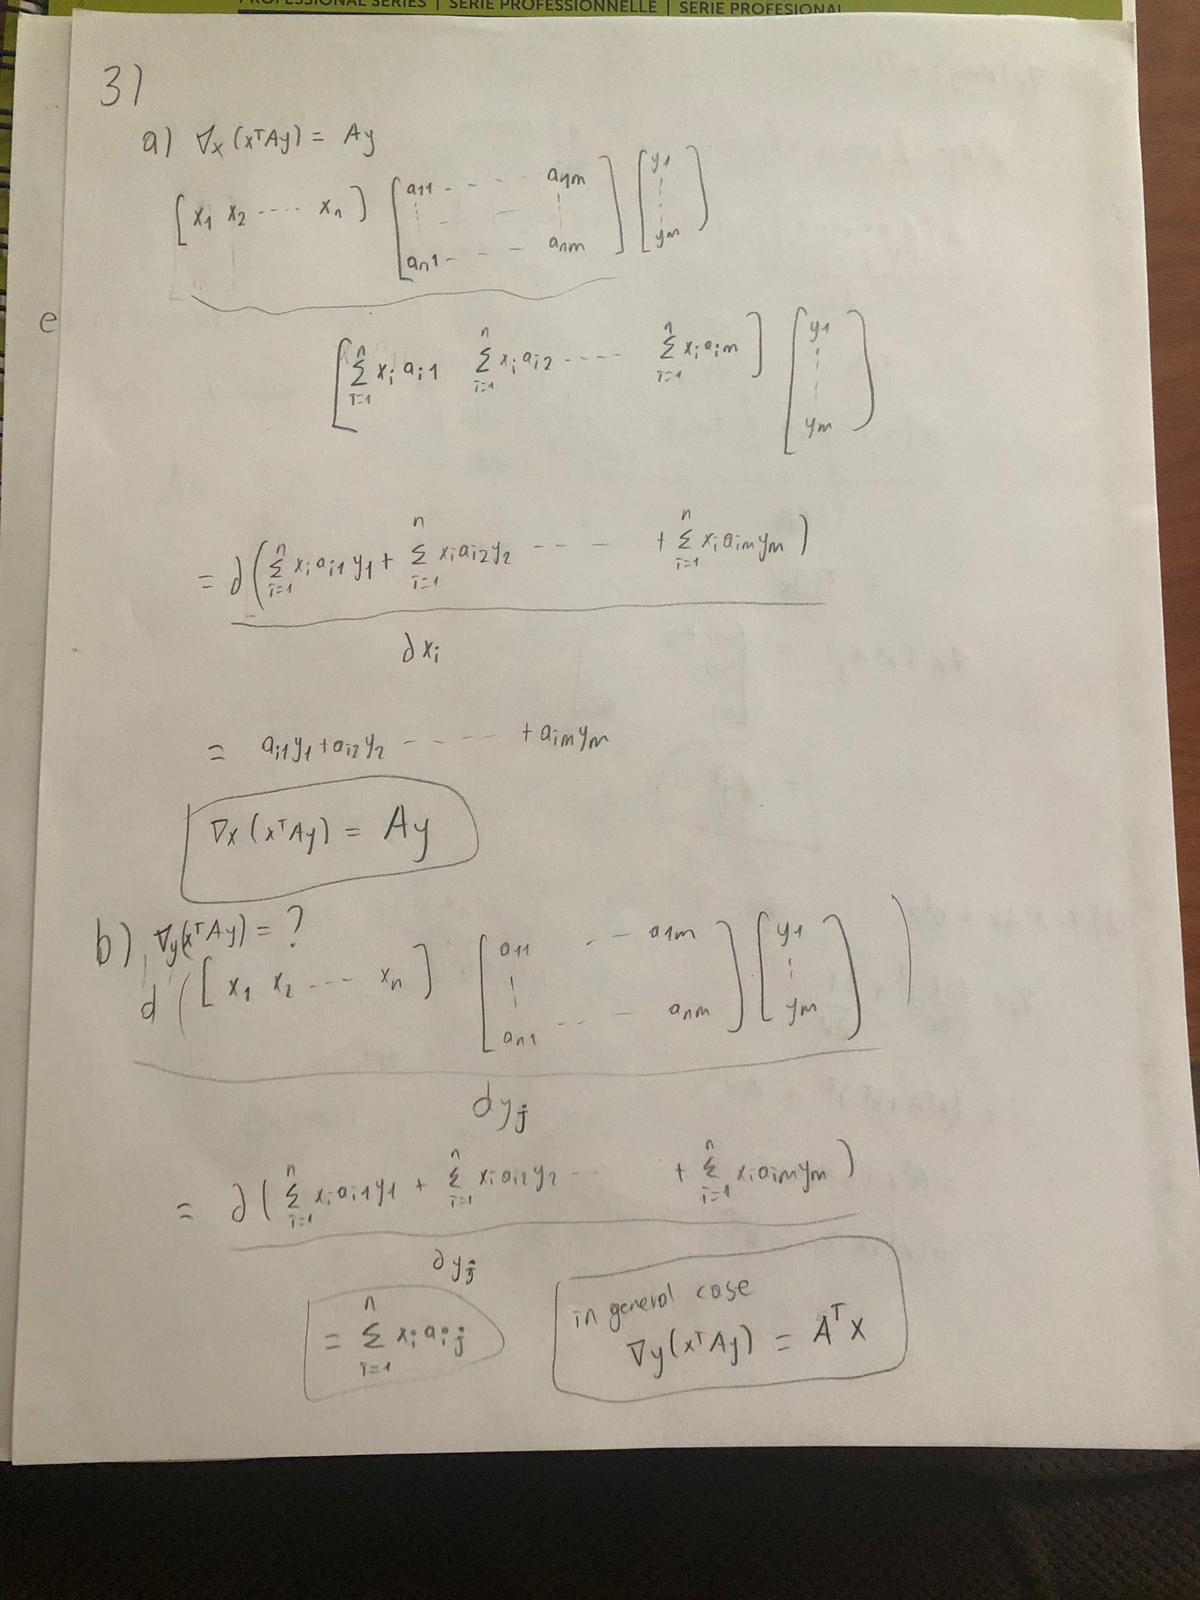 PROFESSIONAL SERIES | SERIE PROFESSIONNELLE | SERIE PROFESIONAL
3)
a) ∇x (xᵀAy) = Ay
[x1 x2 ---- xn] [a11 - - - - a1m; an1 - - - - anm] [y1; ym]
e
[Σ_{i=1}^{n} xi ai1 Σ_{i=1}^{n} xi ai2 ---- Σ_{i=1}^{n} xi aim] [y1; ym]
= ∂(Σ_{i=1}^{n} xi ai1 y1 + Σ_{i=1}^{n} xi ai2 y2 - - - + Σ_{i=1}^{n} xi aim ym)
∂xi
= ai1y1 + ai2y2 ----- + aimym
∇x (xᵀAy) = Ay
b) ∇y(xᵀAy) = ?
d([x1 x2 --- xn] [a11 -- a1m; an1 -- - anm] [y1; ym])
dyj
= ∂(Σ_{i=1}^{n} xi ai1 y1 + Σ_{i=1}^{n} xi ai2 y2 --- + Σ_{i=1}^{n} xi aim ym)
∂yj
= Σ_{i=1}^{n} xi aij
in general case
∇y(xᵀAy) = Aᵀx